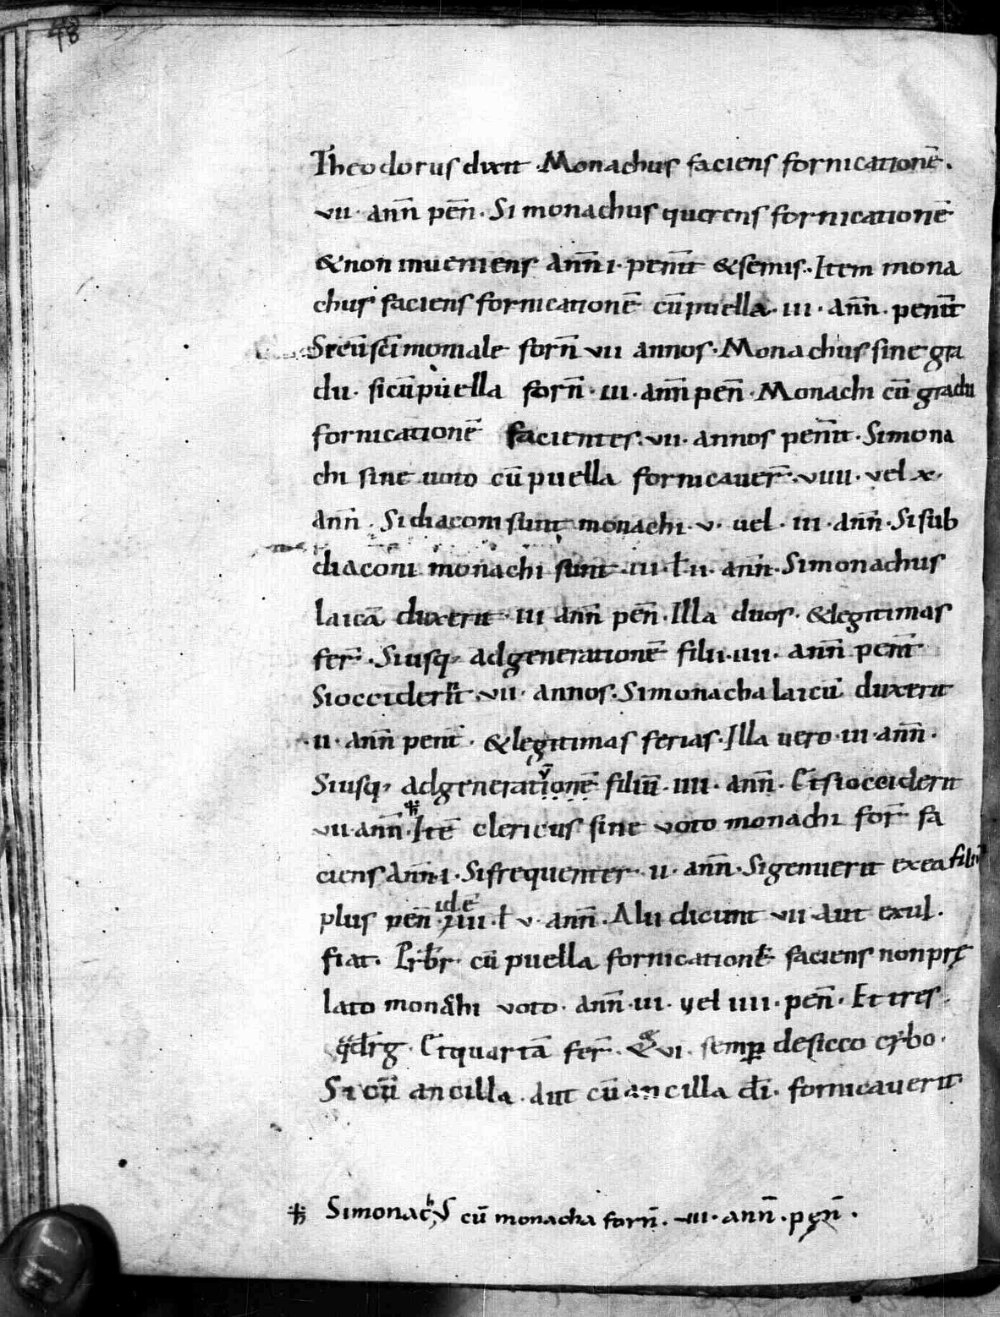 78
Theodorus dixit · Monachus faciens fornicationē.
vii · ann̄ pen̄ · Si monachus querens fornicationē
& non inueniens ann̄ i · penīt & semis · Item mona
chus faciens fornicationē cū puella · iii · ann̄ · penīt
Si cū sc̄imoniale forn̄ vii annos · Monachus sine gra
du · si cū puella forn̄ · iii · ann̄ pen̄ · Monachi cū gradu
fornicationē facientes · vii · annos penīt · Si mona
chi sine uoto cū puella fornicauer̄ · viiii · vel x ·
ann̄ · Si diaconi sunt monachi · v · uel · iii · ann̄ · Si sub
diaconi monachi sunt · iii · ł ii · ann̄ · Si monachus
laicā duxerit · iii ann̄ pen̄ · Illa duos · & legitimas
fer̄ · Si usq; ad generationē filii · iiii · ann̄ penīt
Si occiderit · vii · annos · Si monacha laicū duxerit
· ii · ann̄ penit̄ · & legitimas ferias · Illa uero · iii ann̄ ·
Si usq; ad generationē filiū · iiii · ann̄ · Et si occiderit
vii · ann̄ · Itē clericus sine voto monachi for̄ fa
ciens ann̄ · i · Si frequenter · ii · ann̄ · Si genuerit ex ea filiū
plus pen̄ · idē iiii · ł v · ann̄ · Alii dicunt vii aut exul ·
fiat · Pr̄br̄ · cū puella fornicationē faciens non prę
lato monachi voto · ann̄ · iii · vel iiii · pen̄ · Et tres ·
q̈drg̃ · Et quartā fer̄ · & vi · semp de sicco cybo ·
Si cū ancilla · aut cū ancilla d̄i · fornicauerit
Si monachus cū monacha forn̄ · vii · ann̄ · pen̄ ·